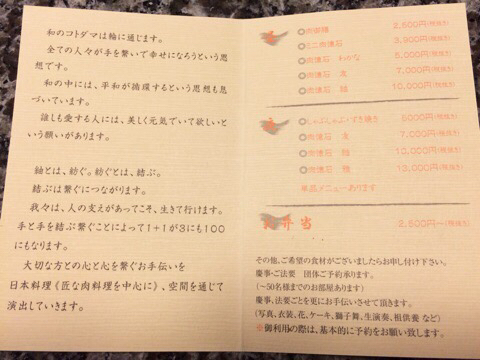 和のコトダマは輪に通じます。
全ての人々が手を繋いで幸せになろうという思
想です。
和の中には、平和が循環するという思想も息
づいています。
誰しも愛する人には、美しく元気でいて欲しいと
いう願いがあります。
紬とは、紡ぐ。紡ぐとは、結ぶ。
結ぶは繋ぐにつながります。
我々は、人の支えがあってこそ、生きて行けます。
手と手を結ぶ繋ぐことによって1+1が3にも100
にもなります。
大切な方との心と心を繋ぐお手伝いを
日本料理《匠な肉料理を中心に》、空間を通じて
演出していきます。
◎肉御膳 2,500円(税抜き)
◎ミニ肉懐石 3,900円(税抜き)
◎肉懐石 わかな 5,000円(税抜き)
◎肉懐石 7,000円(税抜き)
◎肉懐石 紬 10,000円(税抜き)
◎しゃぶしゃぶ・すき焼き 5000円(税抜き)
◎肉懐石 7,000円(税抜き)
◎肉懐石 紬 10,000円(税抜き)
◎肉懐石 雅 13,000円(税抜き)
単品メニューあります
弁当 2,500円〜(税抜き)
その他、ご希望の食材がございましたらお申し付け下さい。
慶事・ご法要 団体ご予約承ります。
(〜50名様までのお部屋あります)
慶事、法要ごとを更にお手伝いさせて頂きます。
(写真、衣装、花、ケーキ、獅子舞、生演奏、祖供養 など)
※御利用の際は、基本的に予約をお願い致します。